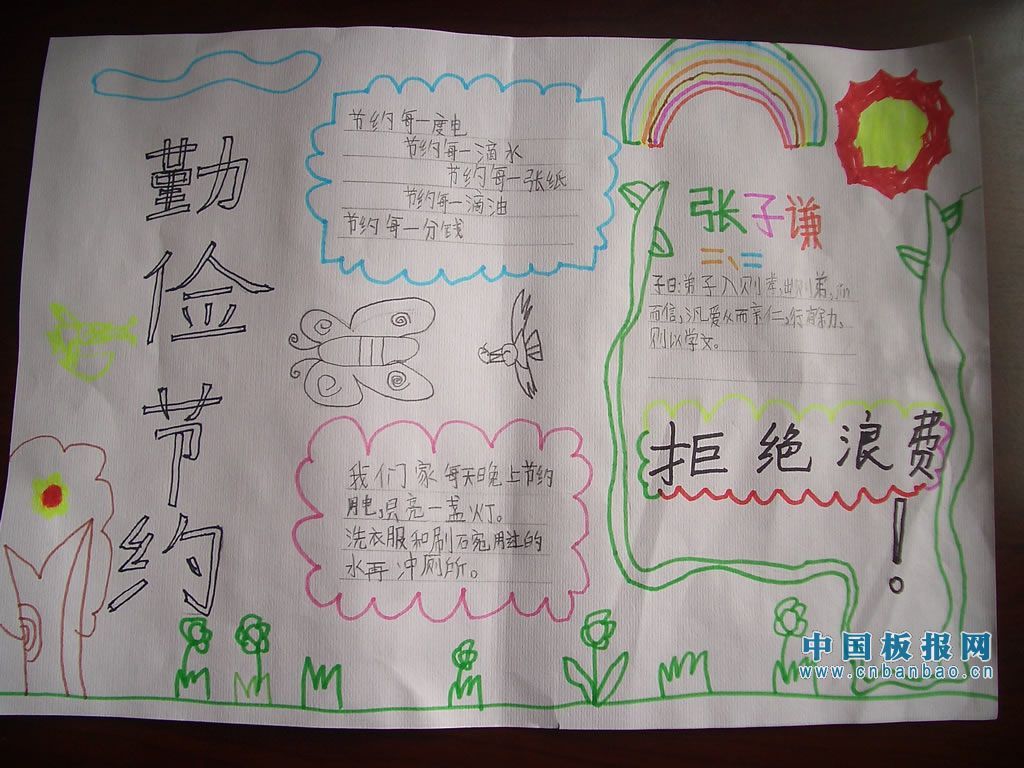 勤俭节约
节约每一度电
节约每一滴水
节约每一张纸
节约每一滴油
节约每一分钱
我们家每天晚上节约
用电,只亮一盏灯。
洗衣服和刷石宛用过的
水再冲厕所。
张子谦
二、二
子曰:弟子入则孝,出则弟,jin
而信,汎爱众而亲仁。行有余力,
则以学文。
拒绝浪费!
中国板报网
www.cnbanbao.cn